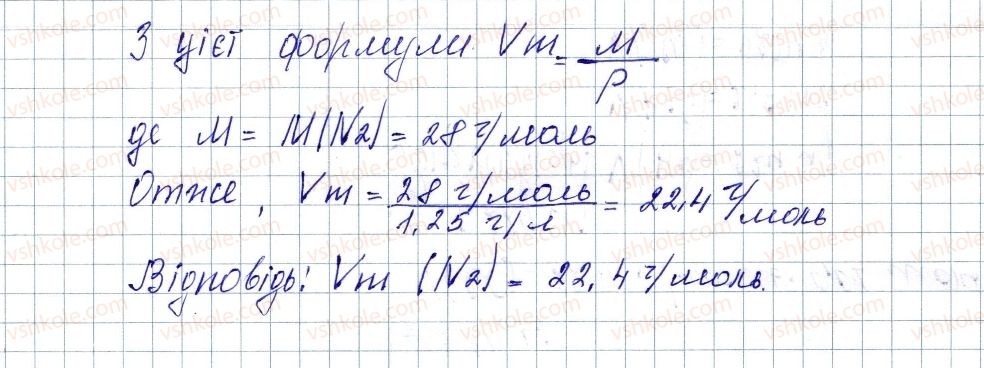 З цієї формули Vm = M/ρ
де M = M(N2) = 28 г/моль
Отже, Vm = 28 г/моль / 1,25 г/л = 22,4 г/моль
Відповідь: Vm (N2) = 22,4 г/моль.